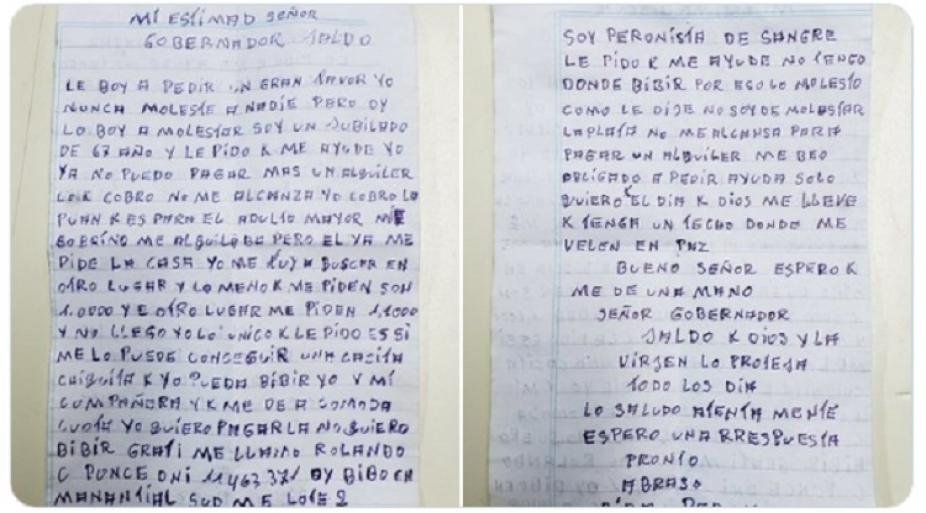 MI ESTIMAD SEÑOR
GOBERNADOR JALDO
LE BOY A PEDIR UN GRAN FAVOR YO
NUNCA MOLESTE A NADIE PERO OY
LO BOY A MOLESTAR SOY UN JUBILADO
DE 67 AÑO Y LE PIDO K ME AYUDE YO
YA NO PUEDO PAGAR MAS UN ALQUILER
LO K COBRO NO ME ALCANZA YO COBRO LA
PUAN K ES PARA EL ADULTO MAYOR MI
SOBRINO ME ALQUILABA PERO EL YA ME
PIDE LA CASA YO ME FUY A BUSCAR EN
OTRO LUGAR Y LO MENOK ME PIDEN SON
Y NO LLEGO YO LO UNICO K LE PIDO ES SI
ME LO PUEDE CONSEGUIR UNA CASITA
CHIQUITA K YO PUEDA BIBIR YO Y MI
COMPAÑERA Y K ME DE A COMODA
CUOTA YO QUIERO PAGARLA NO QUIERO
BIBIR GRATI ME LLAMO ROLANDO
C PONCE DNI OY BIBO EN
MANANTIAL SUD LOTE 2
SOY PERONISTA DE SANGRE
LE PIDO K ME AYUDE NO TENGO
DONDE BIBIR POR ESO LO MOLESTO
COMO LE DIJE NO SOY DE MOLESTAR
LA PLATA NO ME ALCANSA PARA
PAGAR UN ALQUILER ME BEO
OBLIGADO A PEDIR AYUDA SOLO
QUIERO EL DIA K DIOS ME LLEVE
K TENGA UN TECHO DONDE ME
VELEN EN PAZ
BUENO SEÑOR ESPERO K
ME DE UNA MANO
SEÑOR GOBERNADOR
JALDO K DIOS Y LA
VIRJEN LO PROTEJA
TODO LOS DIA
LO SALUDO ATENTA MENTE
ESPERO UNA RRESPUESTA
PRONTO
ABRASO